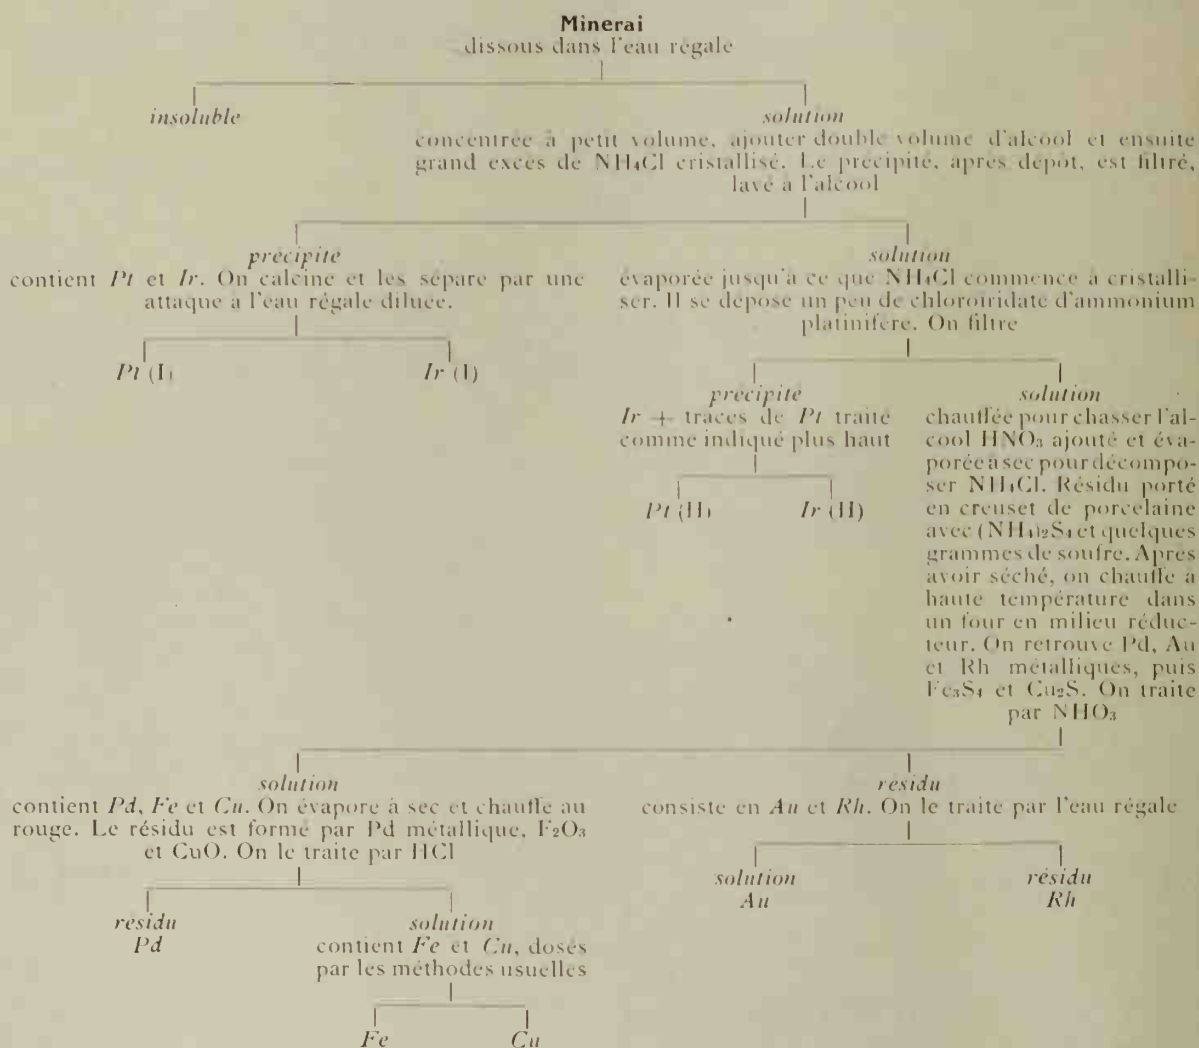 Minerai
dissous dans l'eau régale
insoluble
solution
concentrée à petit volume, ajouter double volume d'alcool et ensuite
grand excès de NH₄Cl cristallisé. Le précipité, après dépôt, est filtré,
lavé à l'alcool
précipité
contient Pt et Ir. On calcine et les sépare par une
attaque à l'eau régale diluée.
Pt (I)
Ir (I)
solution
évaporée jusqu'à ce que NH₄Cl commence à cristalli-
ser. Il se dépose un peu de chloroiridate d'ammonium
platinifère. On filtre
précipité
Ir + traces de Pt traité
comme indiqué plus haut
Pt (II)
Ir (II)
solution
chauffée pour chasser l'al-
cool HNO₃ ajouté et éva-
porée à sec pour décompo-
ser NH₄Cl. Résidu porté
en creuset de porcelaine
avec (NH₄)₂S₄ et quelques
grammes de soufre. Après
avoir séché, on chauffe à
haute température dans
un four en milieu réduc-
teur. On retrouve Pd, Au
et Rh métalliques, puis
Fe₃S₄ et Cu₂S. On traite
par NHO₃
solution
contient Pd, Fe et Cu. On évapore à sec et chauffe au
rouge. Le résidu est formé par Pd métallique, F₂O₃
et CuO. On le traite par HCl
résidu
Pd
solution
contient Fe et Cu, dosés
par les méthodes usuelles
Fe
Cu
résidu
consiste en Au et Rh. On le traite par l'eau régale
solution
Au
résidu
Rh